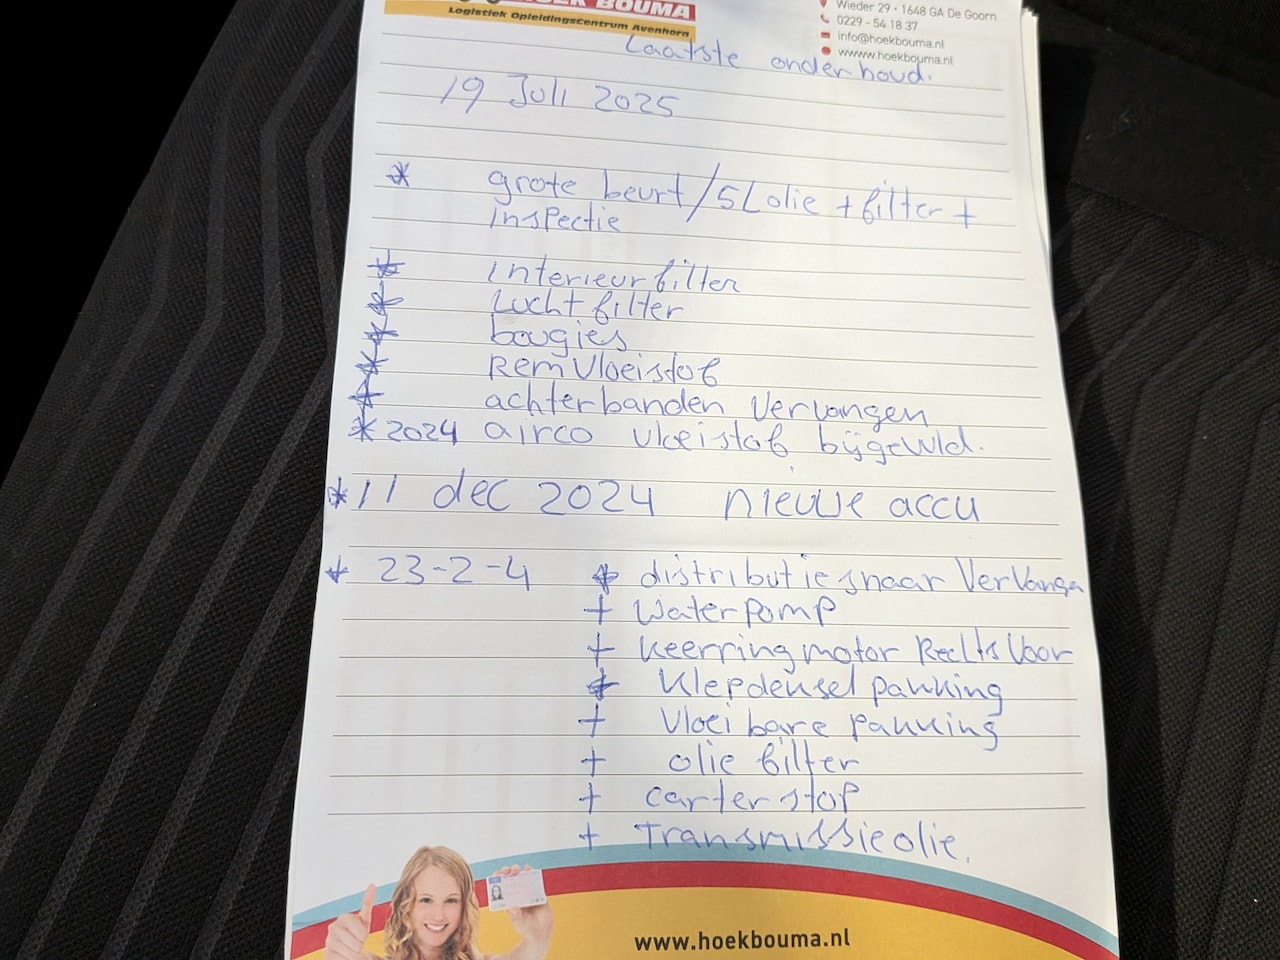 HOEK BOUMA
Logistiek OpleidingsCentrum Avenhorn
Wieder 29 • 1648 GA De Goorn
0229 - 54 18 37
info@hoekbouma.nl
wwww.hoekbouma.nl
Laatste onderhoud.
19 Juli 2025
* grote beurt / 5L olie + filter +
inspectie
* interieurfilter
* luchtfilter
* bougies
* Remvloeistof
* achterbanden vervangen
* 2024 airco vloeistof bijgevuld.
* 11 dec 2024 nieuwe accu
* 23-2-4 * distributiesnaar vervangen
+ waterpomp
+ keerring motor Rechts voor
* klepdeksel pakking
+ vloeibare pakking
+ olie filter
+ carterstop
+ Transmissieolie.
www.hoekbouma.nl